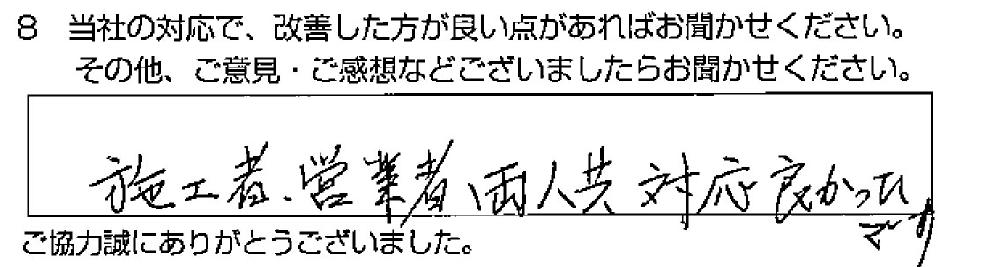 8 当社の対応で、改善した方が良い点があればお聞かせください。
その他、ご意見・ご感想などございましたらお聞かせください。
施工者、営業者、両人共対応良かった
です
ご協力誠にありがとうございました。